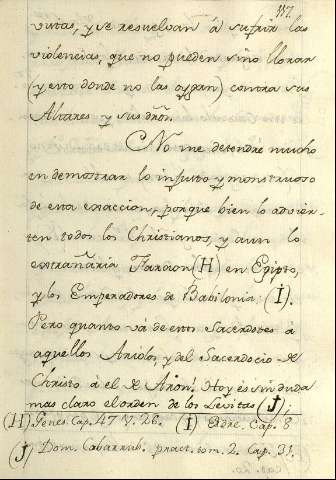 117.
vistas, y se resuelvan á sufrir las
violencias, que no pueden sino llorar
(y esto donde no las oygan) contra sus
Altares y sus dr̃os.
No me detendre mucho
en demostrar lo injusto y monstruoso
de esta exaccion; porque bien lo advier-
ten todos los Christianos, y aun lo
extrañaria Faraon (H) en Egipto,
y los Emperadores de Babilonia (I).
Pero quanto vá de estos Sacerdotes á
aquellos Ariolos, y del Sacerdocio de
Christo á el de Aron! Hoy es sin duda
mas claro el orden de los Levitas (J);
(H) Genes. Cap. 47 V. 26. (I) Esdre. Cap. 8
(J) Dom. Cabarrub. pract. tom. 2. Cap. 31.